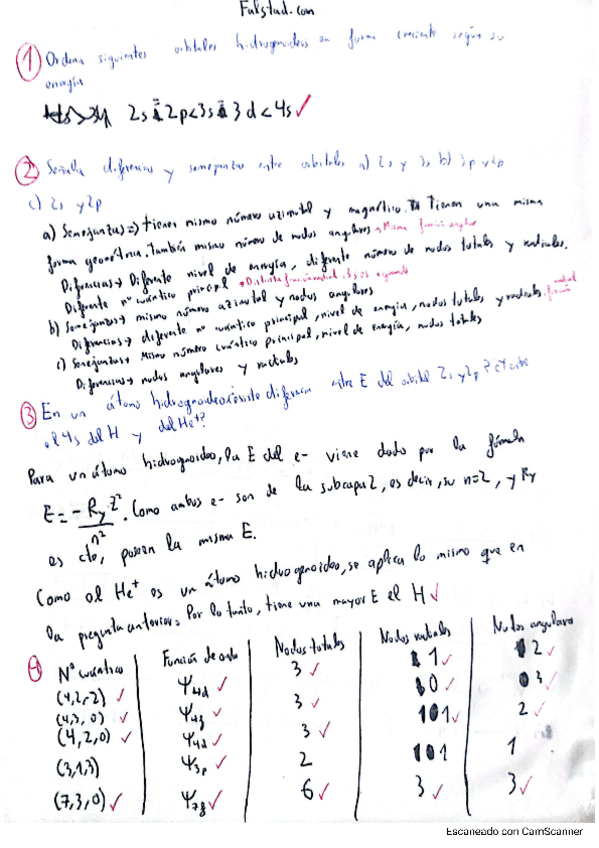 Falstad.com
1 Ordena siguientes orbitales hidrogenoides en forma creciente según su
energía
2s = 2p < 3s = 3d < 4s ✓
2 Señala diferencias y semejanzas entre orbitales a) 2s y 3s b) 3p y 2p
c) 2s y 2p
a) Semejanzas => tienen mismo número azimutal y magnético. Tienen una misma
forma geométrica. También mismo número de nodos angulares • Misma función angular
Diferencias → Diferente nivel de energía, diferente número de nodos totales y radiales.
Diferente nº cuántico principal • Distinta función radial. 3s es
b) Semejanzas → mismo número azimutal y nodos angulares
Diferencias → diferente nº cuántico principal, nivel de energía, nodos totales y radiales. función radial
c) Semejanzas → Mismo número cuántico principal, nivel de energía, nodos totales
Diferencias → nodos angulares y radiales
3 En un átomo hidrogenoide existe diferencia entre E del orbital 2s y 2p? ¿Y entre
el 4s del H y del He+?
Para un átomo hidrogenoide, la E del e- viene dado por la fórmula
E = - Ry Z² / n². Como ambos e- son de la subcapa 2, es decir, su n=2, y Ry
es cte, poseen la misma E.
Como el He+ es un átomo hidrogenoide, se aplica lo mismo que en
la pregunta anterior. Por lo tanto, tiene una mayor E el H ✓
4 Nº cuántico | Función de onda | Nodos totales | Nodos radiales | Nodos angulares
(4,2,-2) ✓ | Ψ4d ✓ | 3 ✓ | 1 ✓ | 2 ✓
(4,3,0) ✓ | Ψ4f ✓ | 3 ✓ | 0 ✓ | 3 ✓
(4,2,0) ✓ | Ψ4d ✓ | 3 ✓ | 1 ✓ | 2 ✓
(3,1,3) | Ψ3p ✓ | 2 | 1 | 1
(7,3,0) ✓ | Ψ7f ✓ | 6 ✓ | 3 ✓ | 3 ✓
Escaneado con CamScanner